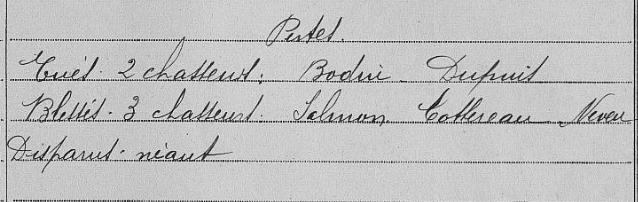 Pertes.
Tués. 2 chasseurs: Bodin - Dupuit
Blessés. 3 chasseurs. Salmon Cottereau Neveu
Disparus. néant